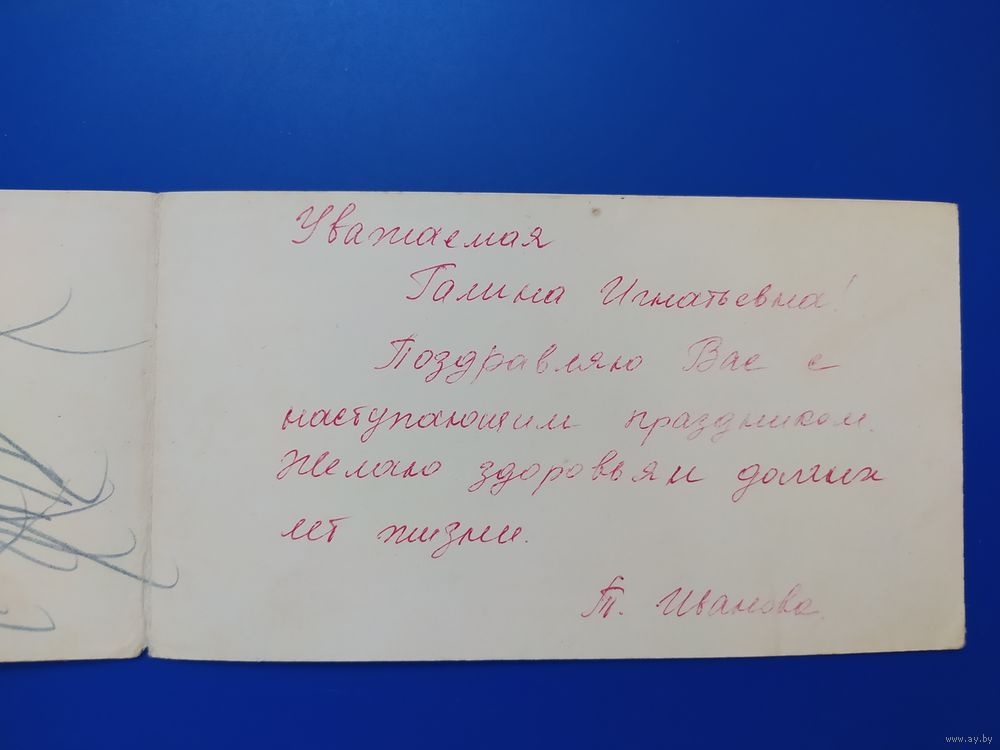 Уважаемая
Галина Игнатьевна!
Поздравляю Вас с
наступающим праздником.
Желаю здоровья и долгих
лет жизни.
Т. Иванова
www.ay.by